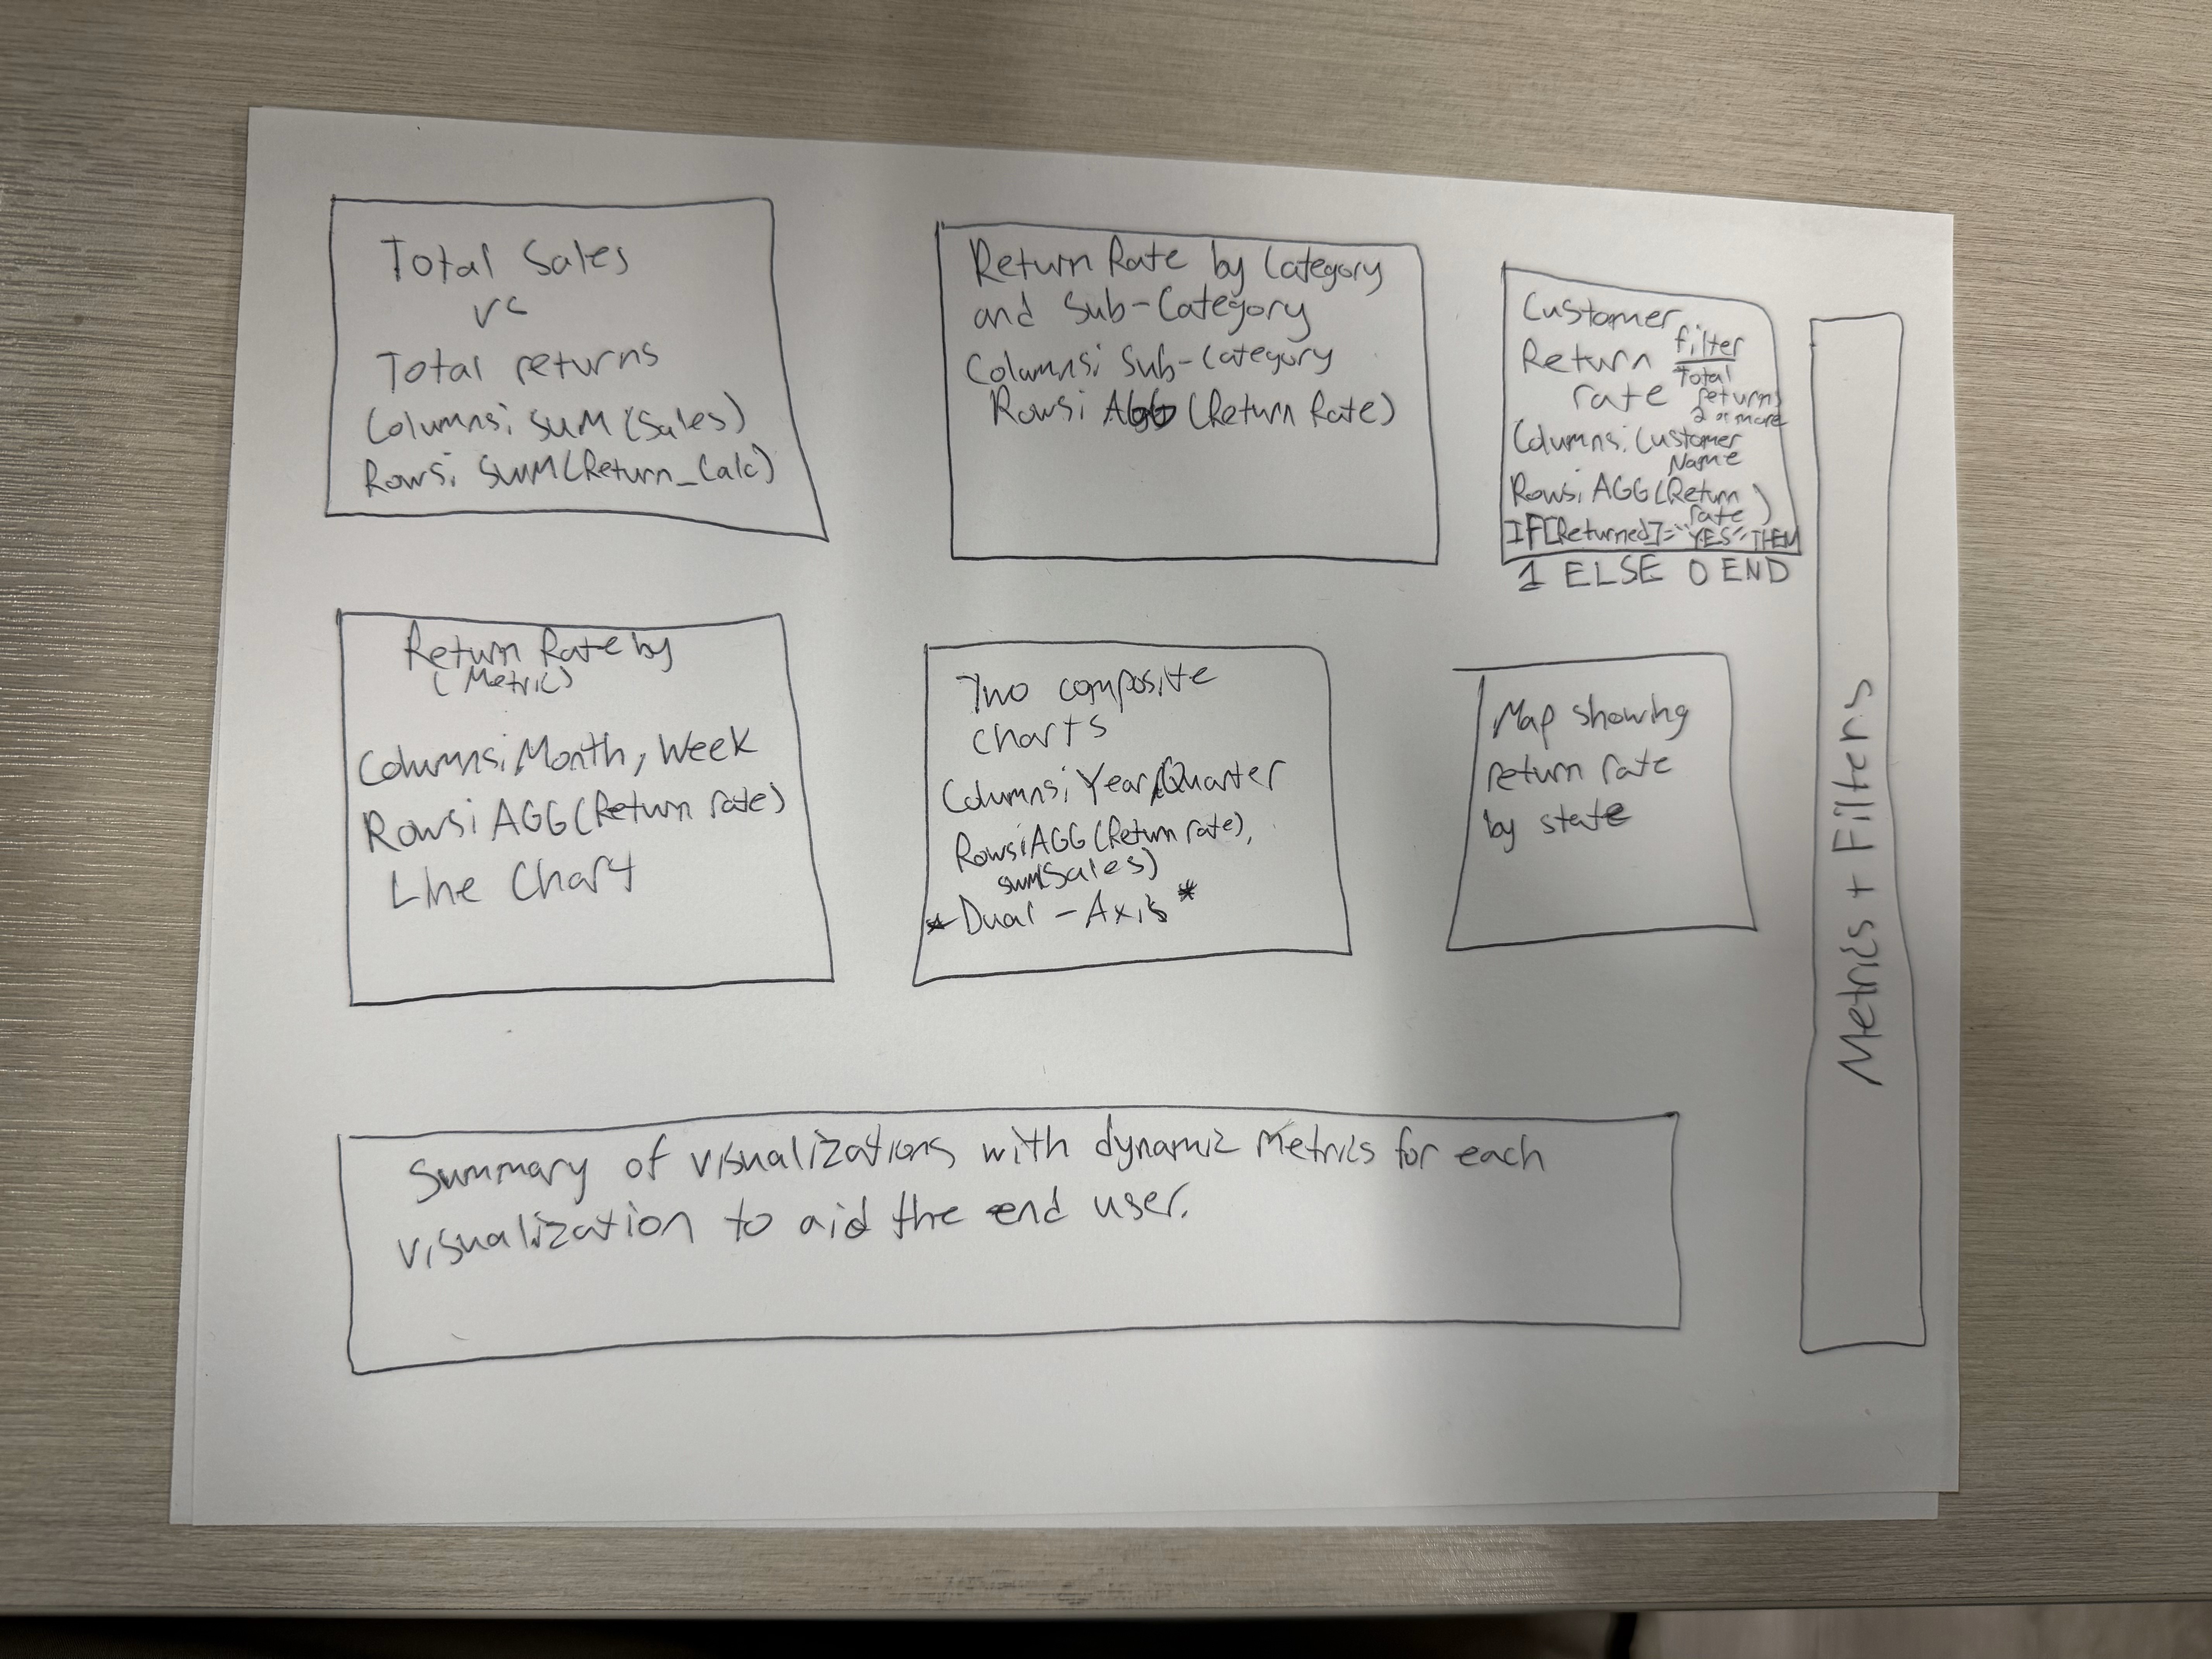 Total Sales
vs
Total returns
Columns: SUM(Sales)
Rows: SUM(Return_Calc)
Return Rate by Category
and Sub-Category
Columns: Sub-Category
Rows: AGG (Return Rate)
Customer
Return
rate
filter
Total
returns
2 or more
Columns: Customer
Name
Rows: AGG(Return
rate)
IF[Returned]="YES" THEN
1 ELSE 0 END
Return Rate by
(Metric)
Columns: Month, Week
Rows: AGG(Return rate)
Line Chart
Two composite
charts
Columns: Year, Quarter
Rows: AGG (Return rate),
sum(Sales)
*Dual-Axis*
Map showing
return rate
by state
Metrics + Filters
Summary of visualizations with dynamic Metrics for each
visualization to aid the end user.